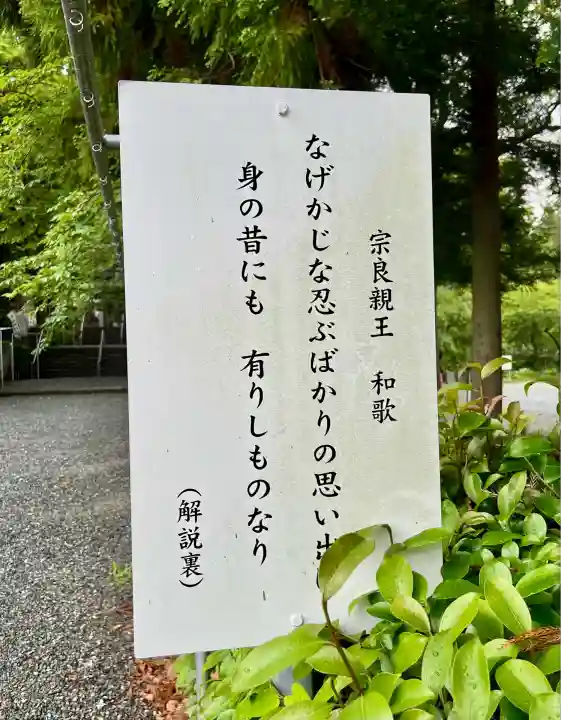 宗良親王　和歌
なげかじな忍ぶばかりの思い出
身の昔にも　有りしものなり
（解説裏）